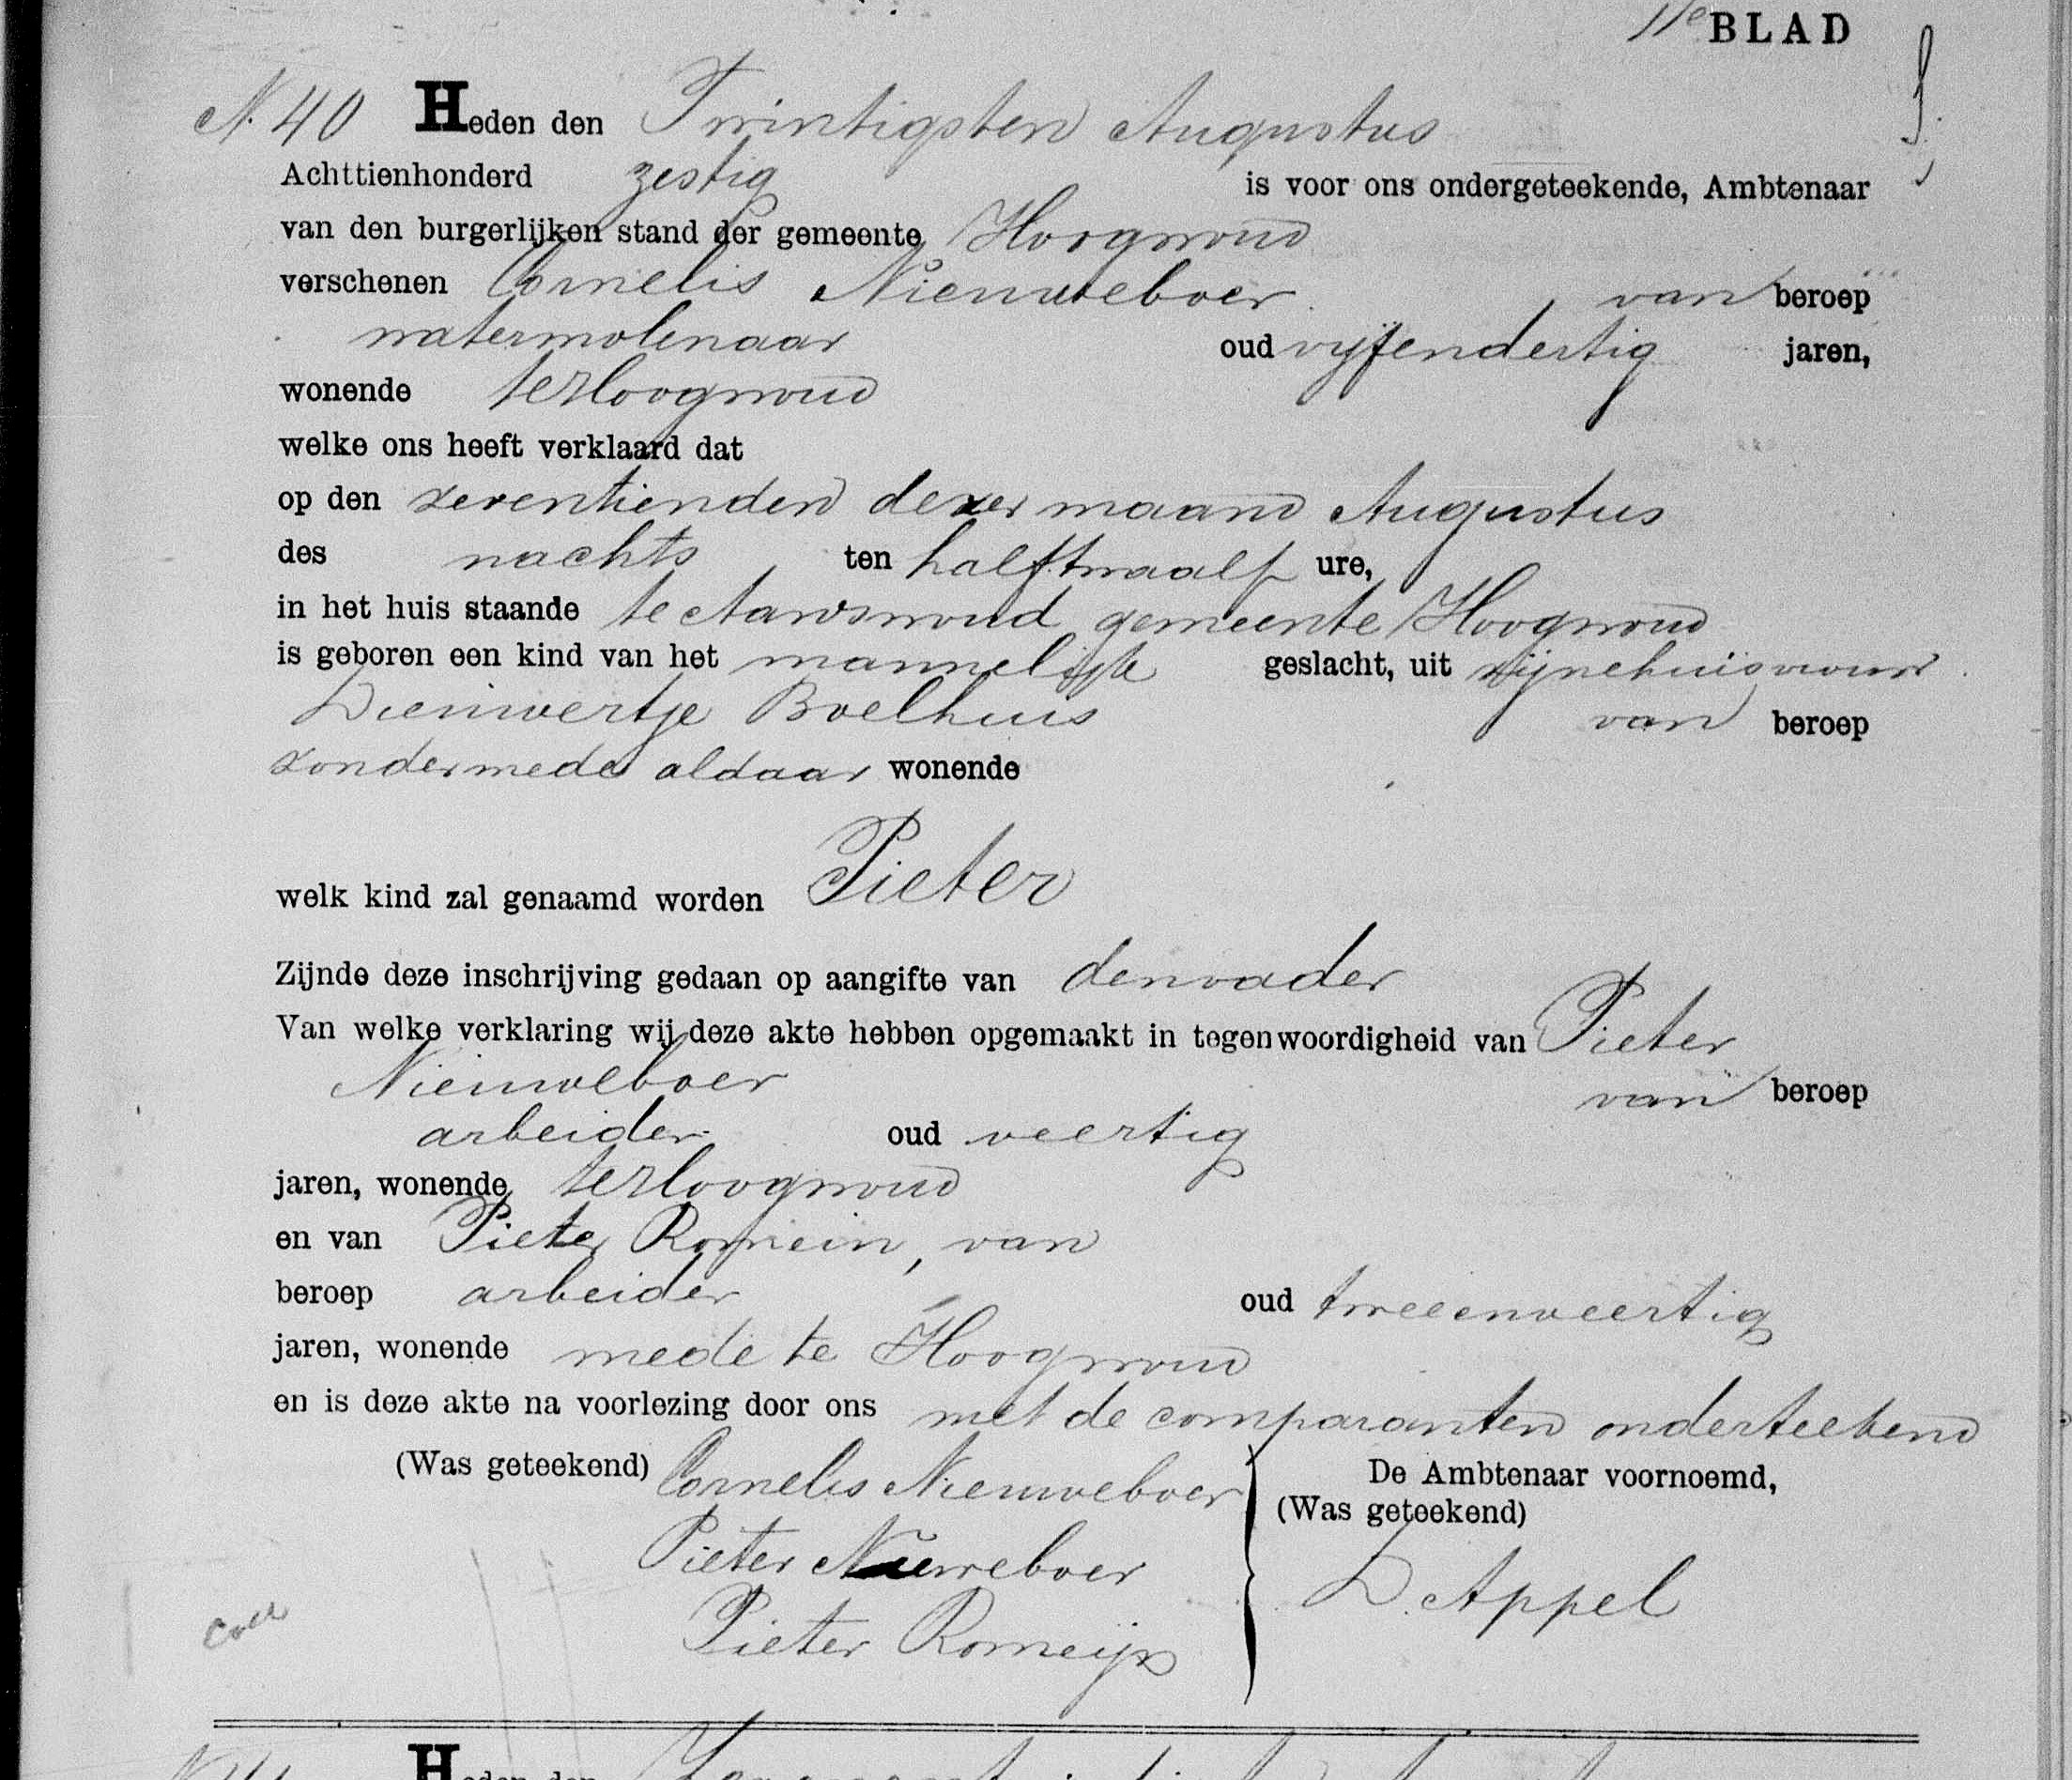 11e BLAD
N. 40 Heden den Twintigsten Augustus
Achttienhonderd zestig is voor ons ondergeteekende, Ambtenaar
van den burgerlijken stand der gemeente Hoogwoud
verschenen Cornelis Nieuweboer van beroep
watermolenaar oud vijfendertig jaren,
wonende te Hoogwoud
welke ons heeft verklaard dat
op den zeventienden dezer maand Augustus
des nachts ten half twaalf ure,
in het huis staande te Aartswoud gemeente Hoogwoud
is geboren een kind van het mannelijk geslacht, uit zijne huisvrouw
Dieuwertje Boelhuis van beroep
zonder mede aldaar wonende
welk kind zal genaamd worden Pieter
Zijnde deze inschrijving gedaan op aangifte van den vader
Van welke verklaring wij deze akte hebben opgemaakt in tegenwoordigheid van Pieter
Nieuweboer van beroep
arbeider oud veertig
jaren, wonende te Hoogwoud
en van Pieter Romein, van
beroep arbeider oud tweeenveertig
jaren, wonende mede te Hoogwoud
en is deze akte na voorlezing door ons met de comparanten onderteekend
(Was geteekend) Cornelis Nieuweboer De Ambtenaar voornoemd,
(Was geteekend)
Pieter Nieuweboer D. Appel
Pieter Romeijn
Heden den